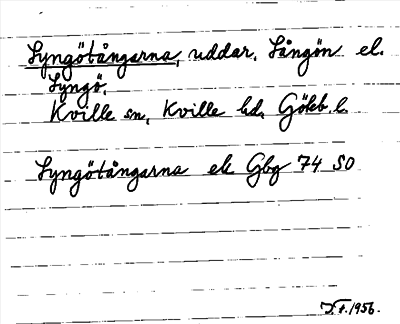 Syngötångarna, uddar. Långön el.
Syngö.
Kville sn, Kville hd, Göteb. l.
Syngötångarna ek Gbg 74 SO
J.F. 1956.